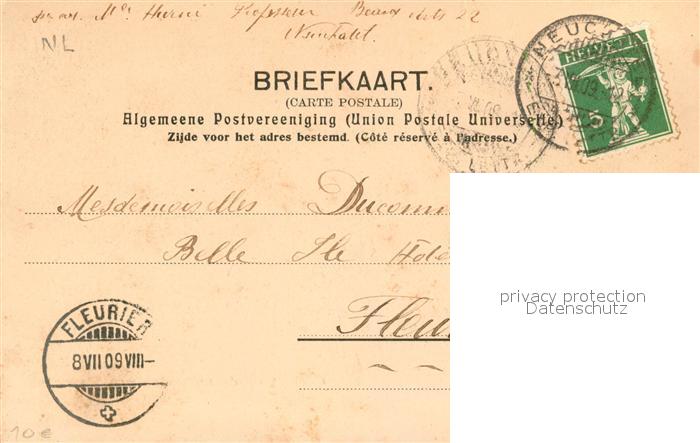 Professeur Beaux Arts 22
NL
BRIEFKAART.
(CARTE POSTALE)
Algemeene Postvereeniging (Union Postale Universelle.)
Zijde voor het adres bestemd. (Côté réservé à l'adresse.)
NEUCH
HELVETIA
5
Mesdemoiselles Ducomm
Belle Ile Hôte
Fleu
privacy protection
Datenschutz
FLEURIER
8 VII 09 VIII-
10€